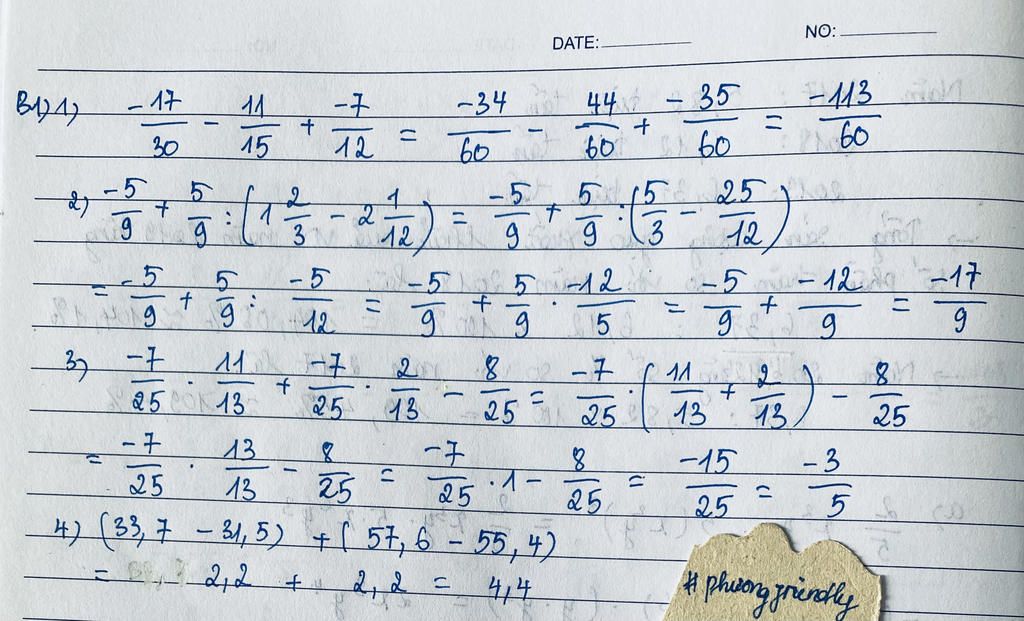 DATE: NO:
B1) 1) -17/30 - 11/15 + -7/12 = -34/60 - 44/60 + -35/60 = -113/60
2) -5/9 + 5/9 : (1 2/3 - 2 1/12) = -5/9 + 5/9 : (5/3 - 25/12)
= -5/9 + 5/9 : -5/12 = -5/9 + 5/9 . -12/5 = -5/9 + -12/9 = -17/9
3) -7/25 . 11/13 + -7/25 . 2/13 - 8/25 = -7/25 : (11/13 + 2/13) - 8/25
= -7/25 . 13/13 - 8/25 = -7/25 . 1 - 8/25 = -15/25 = -3/5
4) (33,7 - 31,5) + (57,6 - 55,4)
= 2,2 + 2,2 = 4,4
#phuongfriendly